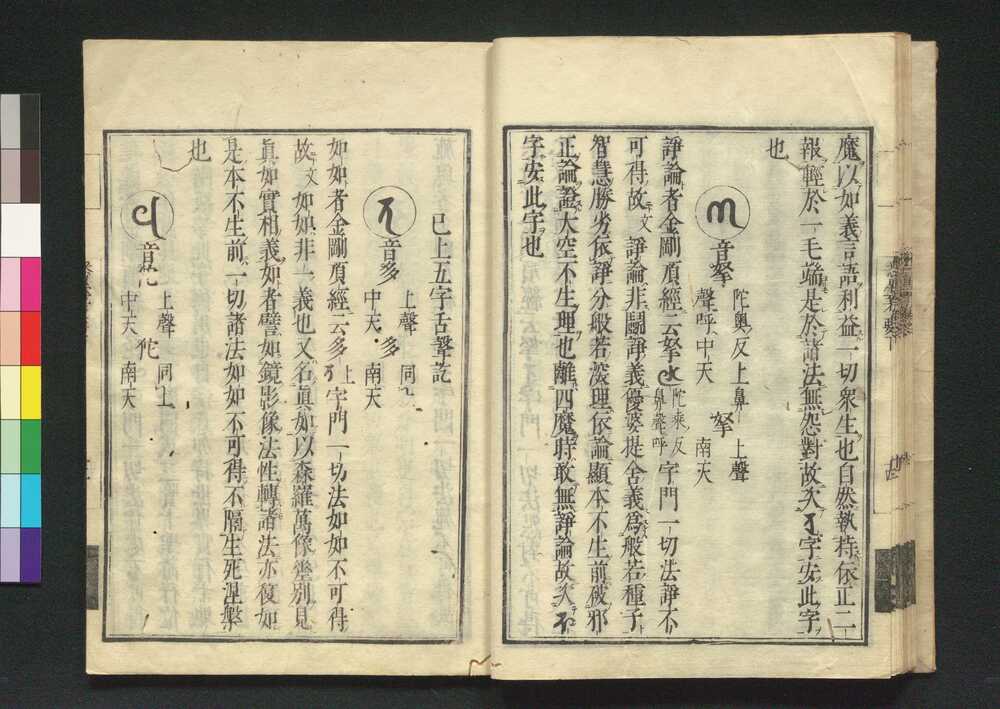 魔以如義言語利益一切衆生也自然執持依正二
報輕於一毛端是於諸法無怨對故次字安此字
也
音拏 陀奥反上鼻聲呼中天 拏 上聲南天
諍論者金剛頂經云拏 陀爽反鼻聲呼 字門一切法諍不
可得故文 諍論非鬭諍義優婆提舍義爲般若種子
智慧勝劣依諍分般若深理依論顯本不生前破邪
正論證大空不生理也離四魔時敢無諍論故次
字安此字也
已上五字舌聲訖
音多 上聲中天 多 同上南天
如如者金剛頂經云多上字門一切法如如不可得
故文 如如非一義也又名眞如以森羅萬像塋別見
眞如實相義如者譬如鏡影像法性轉諸法亦復如
是本不生前一切諸法如如不可得不膈生死涅槃
也
音佗 上聲中天 佗 同上南天